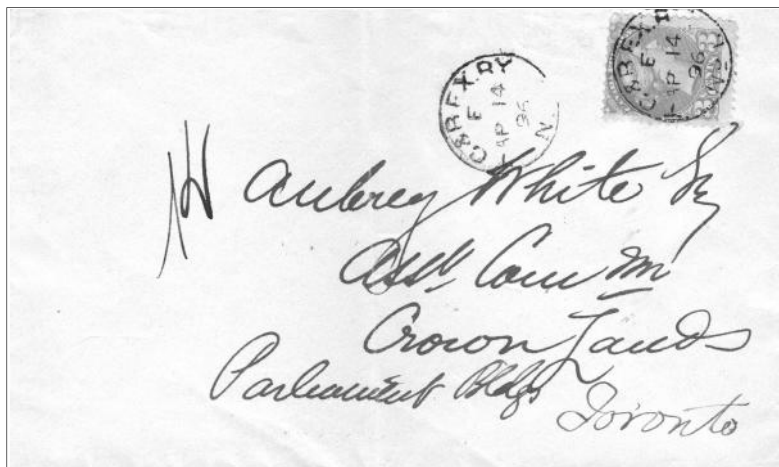 C&BEX.RY
E
AP 14
96
N.
C&BEX
E
AP 14
96
Aubrey White Esq
Asst Com m
Crown Lands
Parliament Bldgs
Toronto